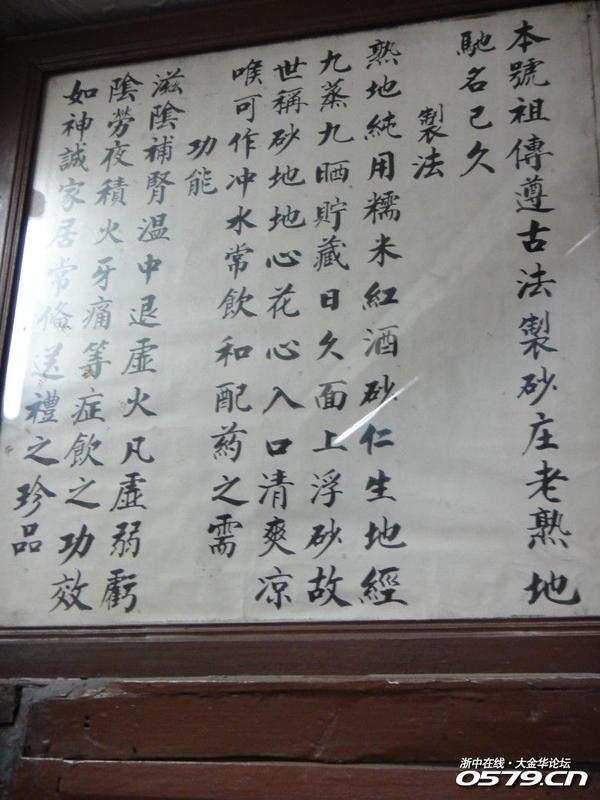 本號祖傳遵古法製砂庄老熟地
馳名已久
製法
熟地純用糯米紅酒砂仁生地經
九蒸九晒貯藏日久面上浮砂故
世稱砂地地心花心入口清爽凉
喉可作冲水常飲和配葯之需
功能
滋陰補腎溫中退虛火凡虛弱虧
陰勞夜積火牙痛等症飲之功效
如神誠家居常俻送禮之珍品
浙中在线·大金华论坛
0579.cn